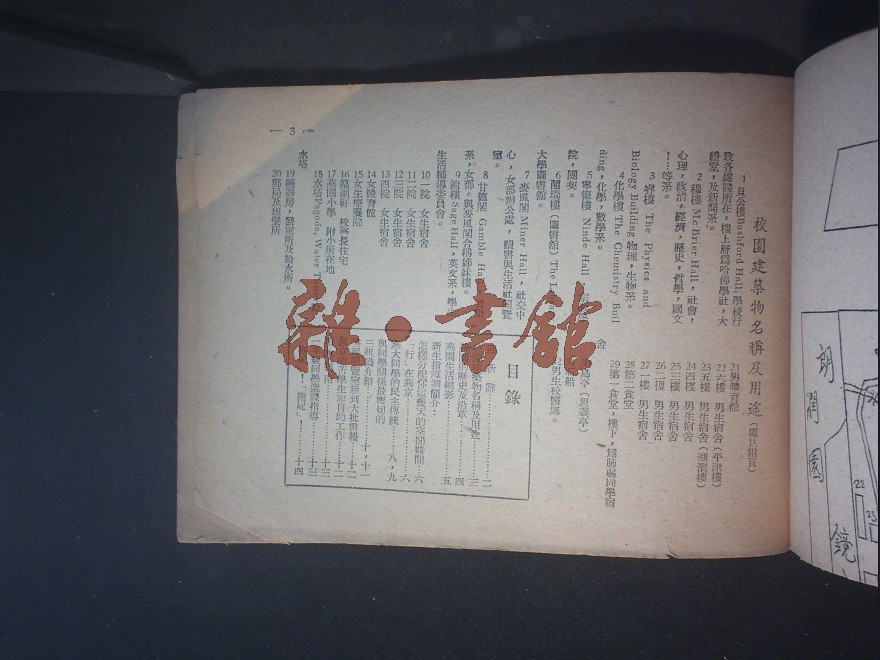 校園建築物名稱及用途（圖見附頁）
1貝公樓Bashford Hall,學校行
政各處課所在,樓上府爲哈佛學社,大
禮堂,及新聞系。
2穆樓 Mc Brier Hall,社會,
心理,政治,經濟,歷史,哲學,國文
!…等系。
3寧樓 The Physics and
Biology Building 物理,生物系。
4化學樓 The Chemistry Buil
ding,化學,數學系。
5寧德樓 Ninde Hall
院,團契。
6圖書館）The
大學圖書館。
7麥風閣 Miner Hall,社交中
心,女部辦公處,讀書與生活社閱覽
室。
8甘德閣 Gamble Ha
系,女部。與麥風閣合稱姊妹樓。
9適樓Sage Hall,英文系,學
生活輔導委員會。
10一院 女生宿舍
11二院 女生宿舍
12三院 女生宿舍
13四院 女生宿舍
14女體育館
15女生療養院
16臨湖軒 校務長住宅
17燕園小學 附小所在地
18水塔Pagoda, Water T
水塔
19鍋爐房,發電所及給水所。
20郵局及理髮所
21男體育館
22六樓 男生宿舍（平津樓）
23五樓 男生宿舍（湖濱樓）
24四樓 男生宿舍
25三樓 男生宿舍
26二樓 男生宿舍
27一樓 男生宿舍
28第二食堂
29第一食堂,樓下,爲肺弱同學宿
舍
亭（思義亭）
船
男生校醫處。
目錄
新 辭……二
築物名稱及用途……三
的歷史及沿革……四
燕園生活縮影……五
新生指導週簡介:
怎樣分配你這幾天的空閒時間…六
「行」在燕京……六
燕大同學的民主傳統……八,九
與同學關係最密切的
三組織介紹……十,十一
新到大批書報……十二
學生和自助工作……十二
十三
同學選課指導……十三
！「拖屍」!……十四
— 3 —
雜·書館
朗潤園
鏡
22
23